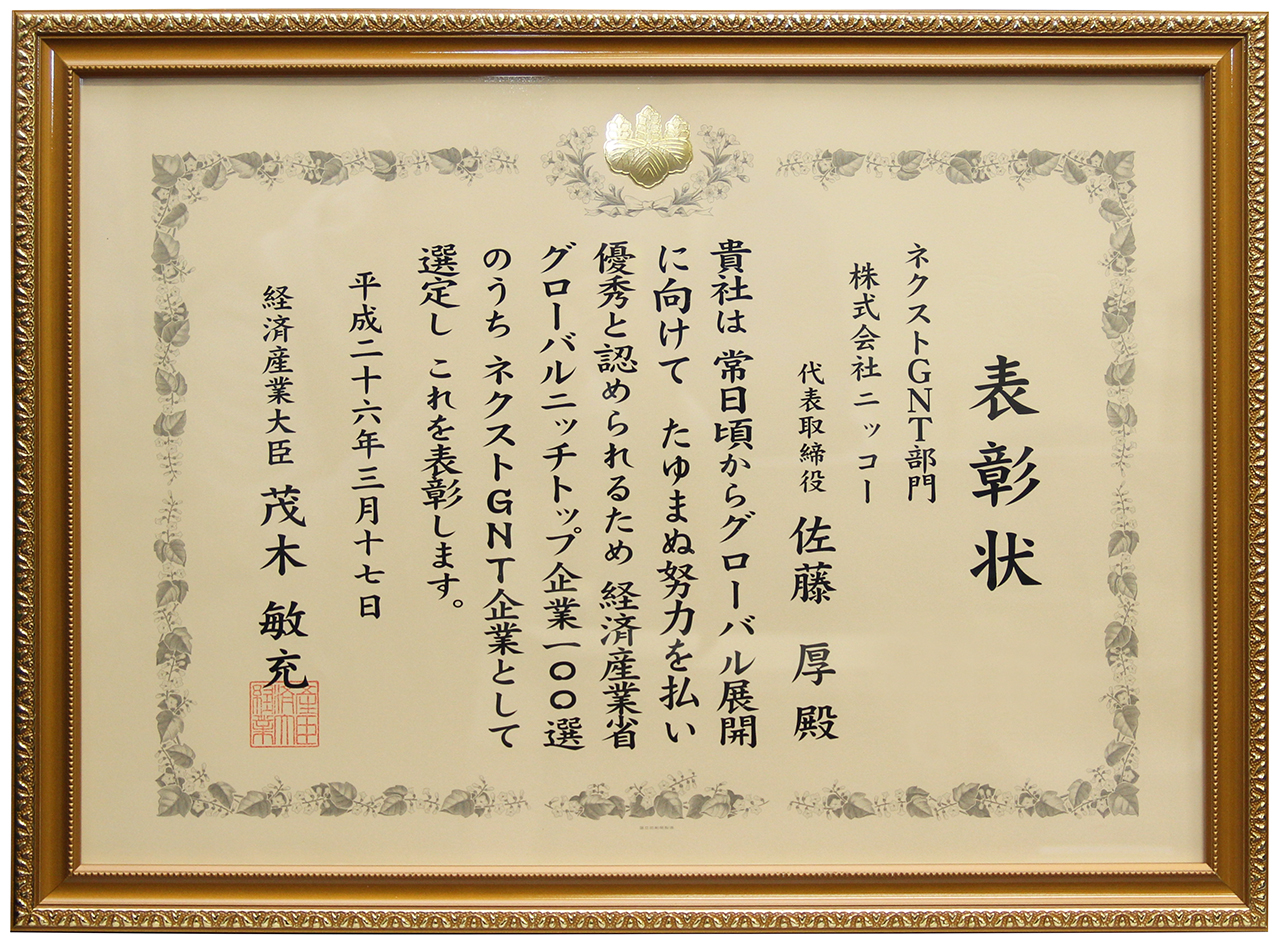 表彰状
ネクストGNT部門
株式会社ニッコー
代表取締役 佐藤 厚 殿
貴社は 常日頃からグローバル展開
に向けて たゆまぬ努力を払い
優秀と認められるため 経済産業省
グローバルニッチトップ企業一〇〇選
のうち ネクストGNT企業として
選定し これを表彰します。
平成二十六年三月十七日
経済産業大臣 茂木 敏充